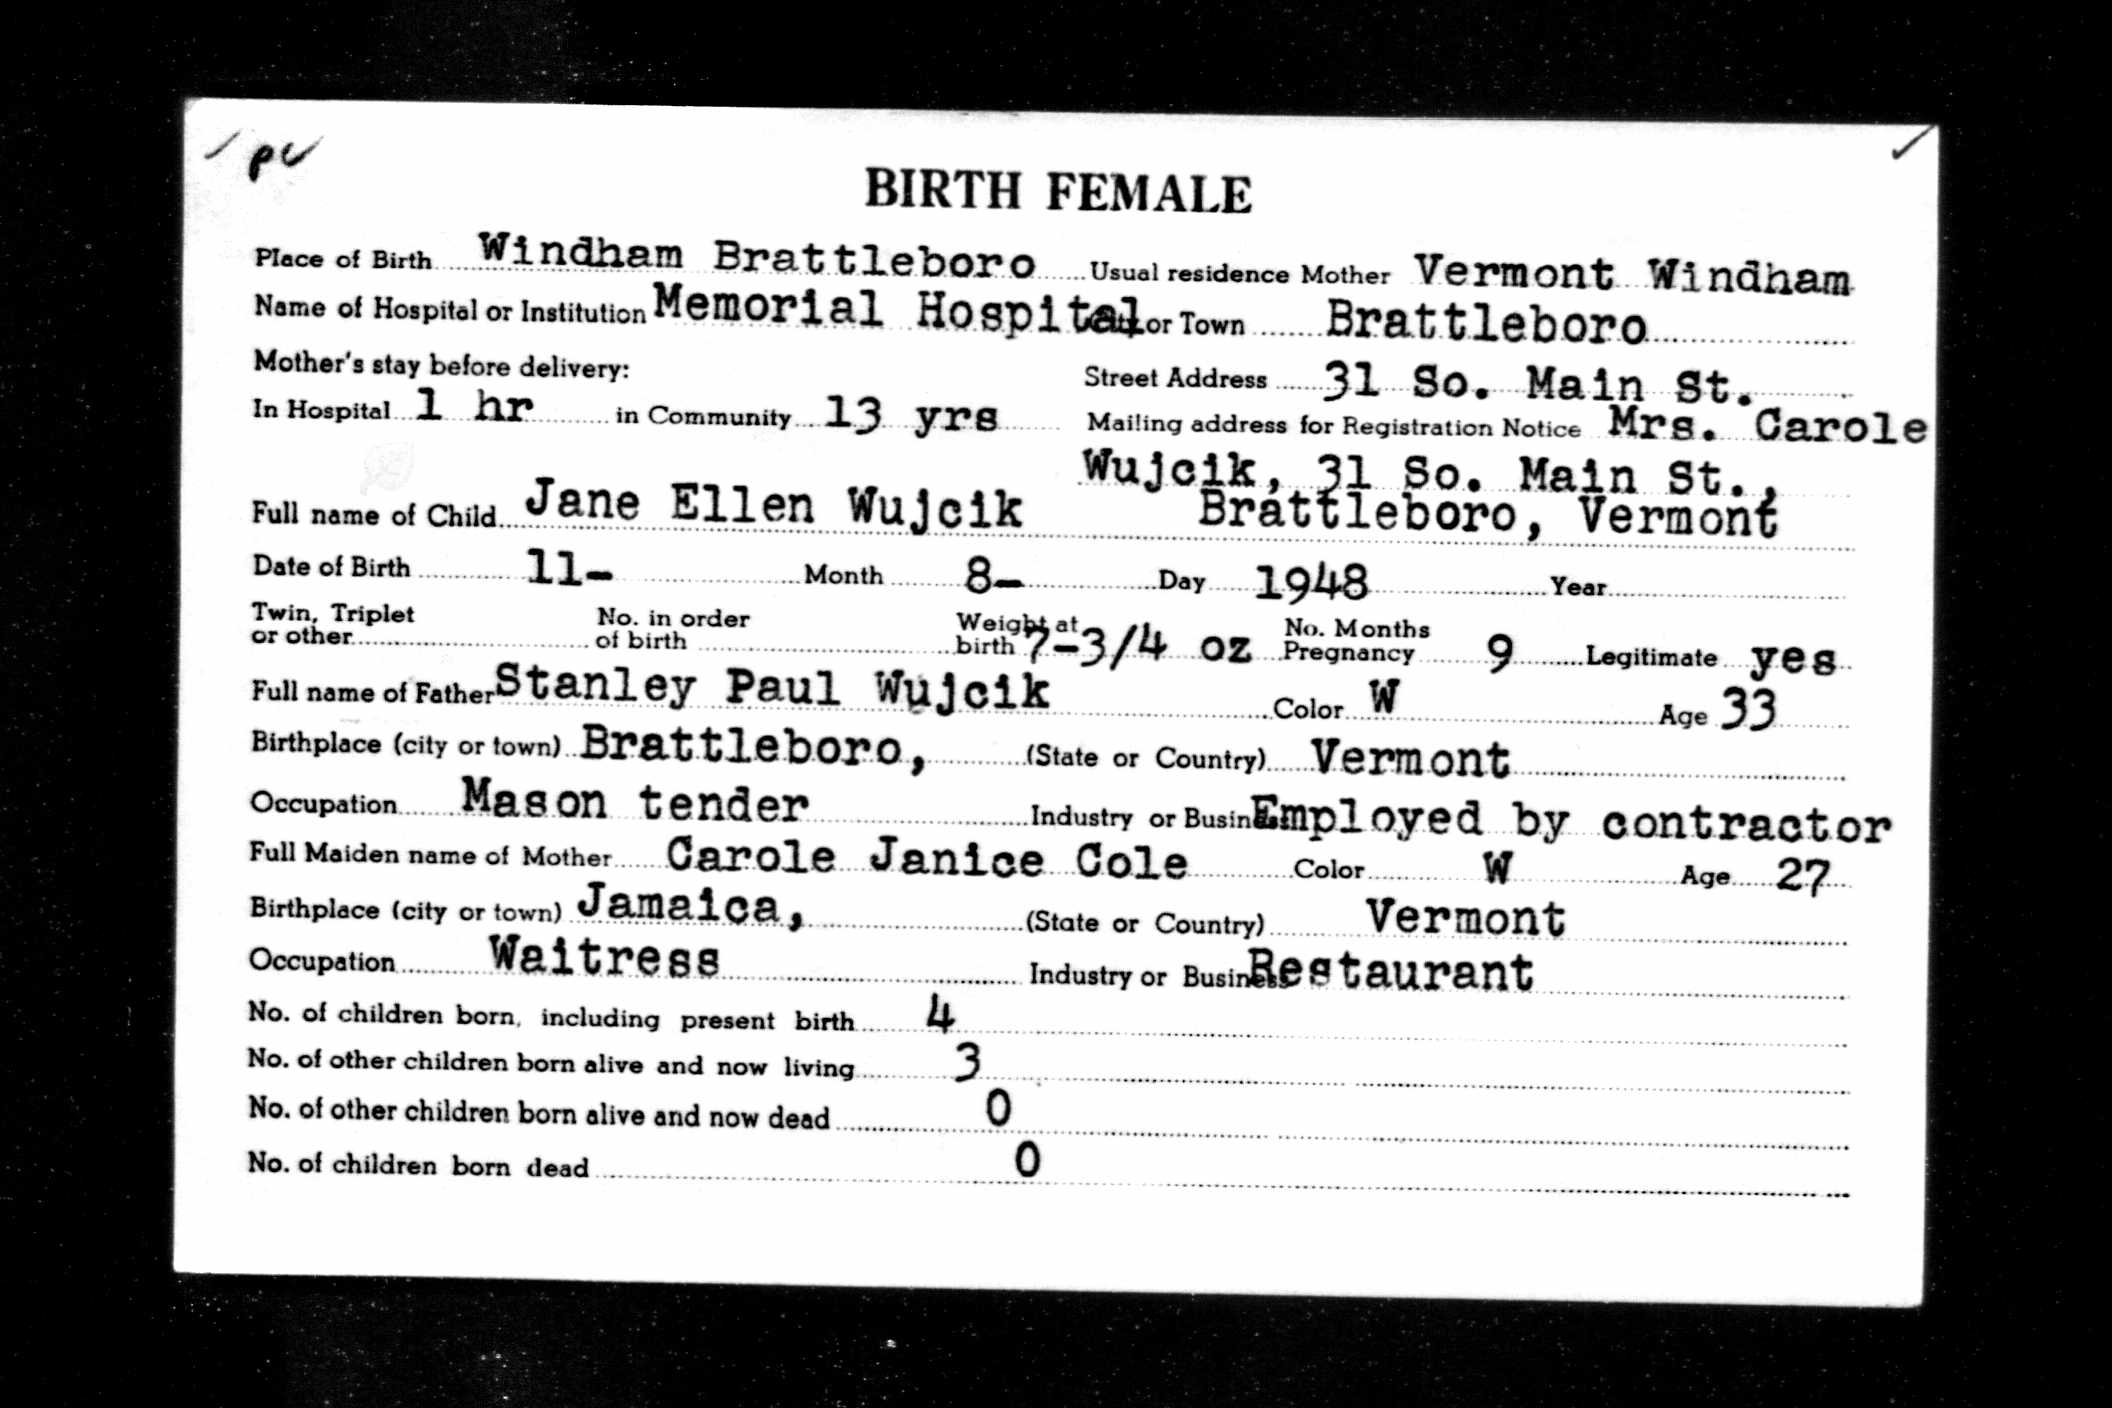 pc
BIRTH FEMALE
Place of Birth Windham Brattleboro Usual residence Mother Vermont Windham
Name of Hospital or Institution Memorial Hospital City or Town Brattleboro
Mother's stay before delivery: Street Address 31 So. Main St.
In Hospital 1 hr in Community 13 yrs Mailing address for Registration Notice Mrs. Carole
Wujcik, 31 So. Main St.,
Full name of Child Jane Ellen Wujcik Brattleboro, Vermont
Date of Birth 11- Month 8- Day 1948 Year
Twin, Triplet No. in order Weight at No. Months
or other of birth birth 7-3/4 oz Pregnancy 9 Legitimate yes
Full name of Father Stanley Paul Wujcik Color W Age 33
Birthplace (city or town) Brattleboro, (State or Country) Vermont
Occupation Mason tender Industry or Business Employed by contractor
Full Maiden name of Mother Carole Janice Cole Color W Age 27
Birthplace (city or town) Jamaica, (State or Country) Vermont
Occupation Waitress Industry or Business Restaurant
No. of children born, including present birth 4
No. of other children born alive and now living 3
No. of other children born alive and now dead 0
No. of children born dead 0